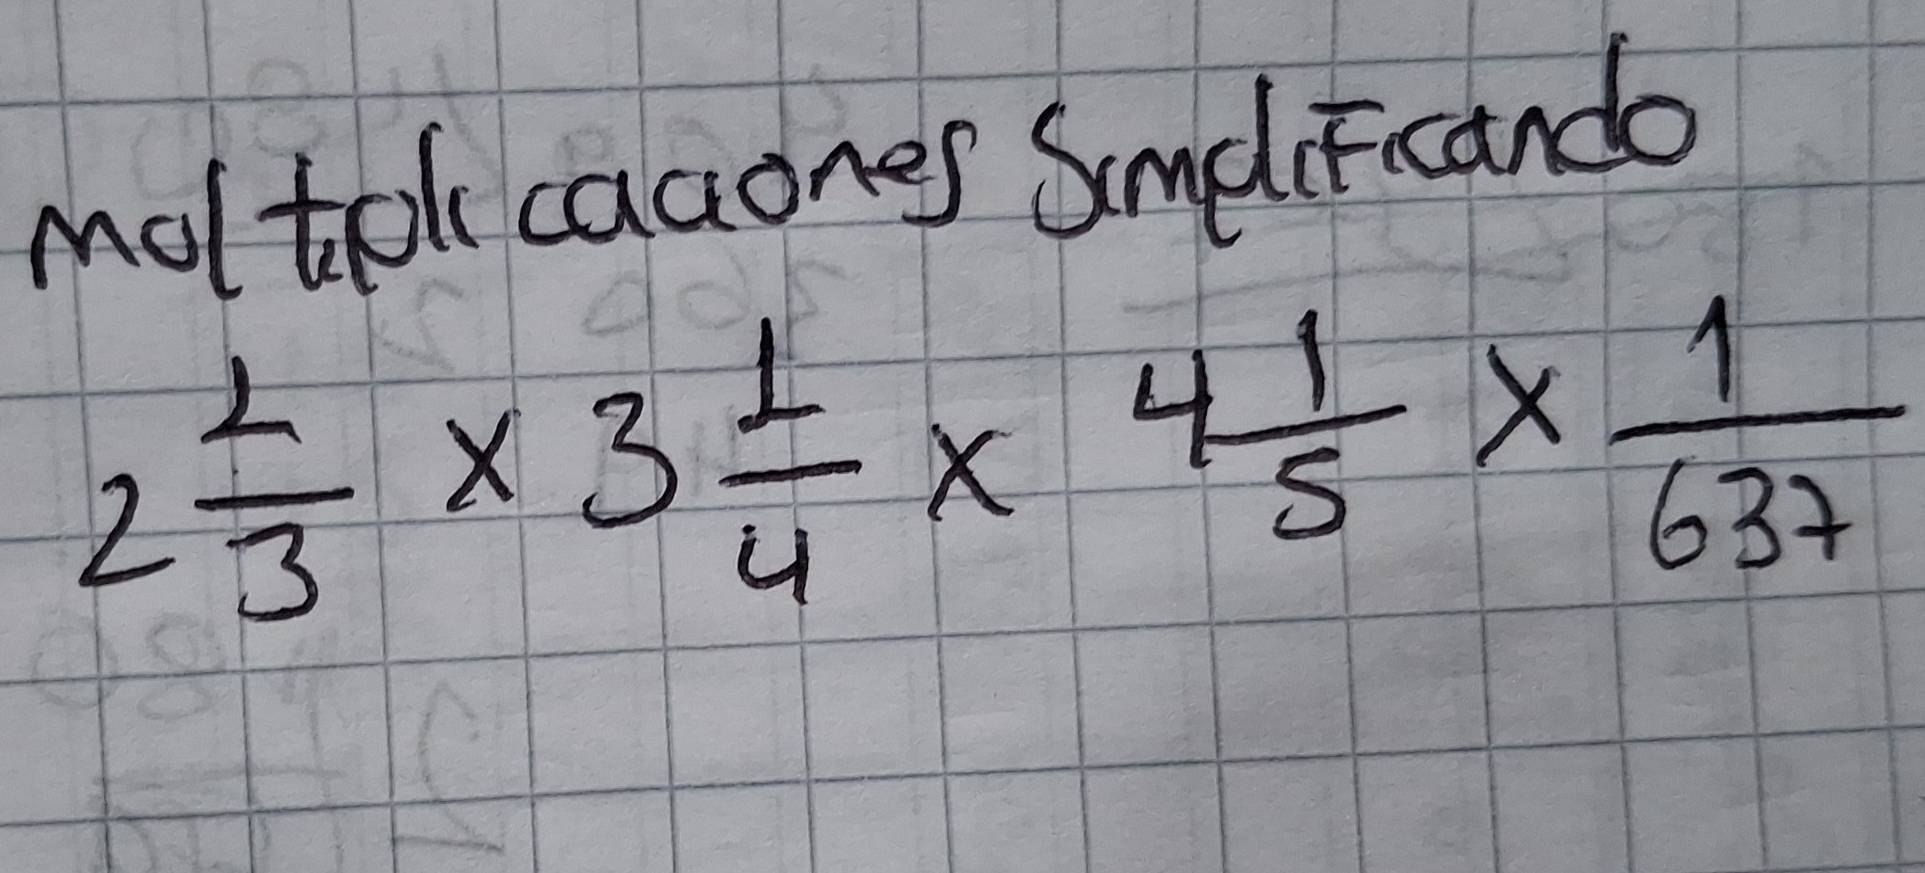 Moltiplicaciones Simplificando
2 1/3 x 3 1/4 x 4 1/5 x 1/637